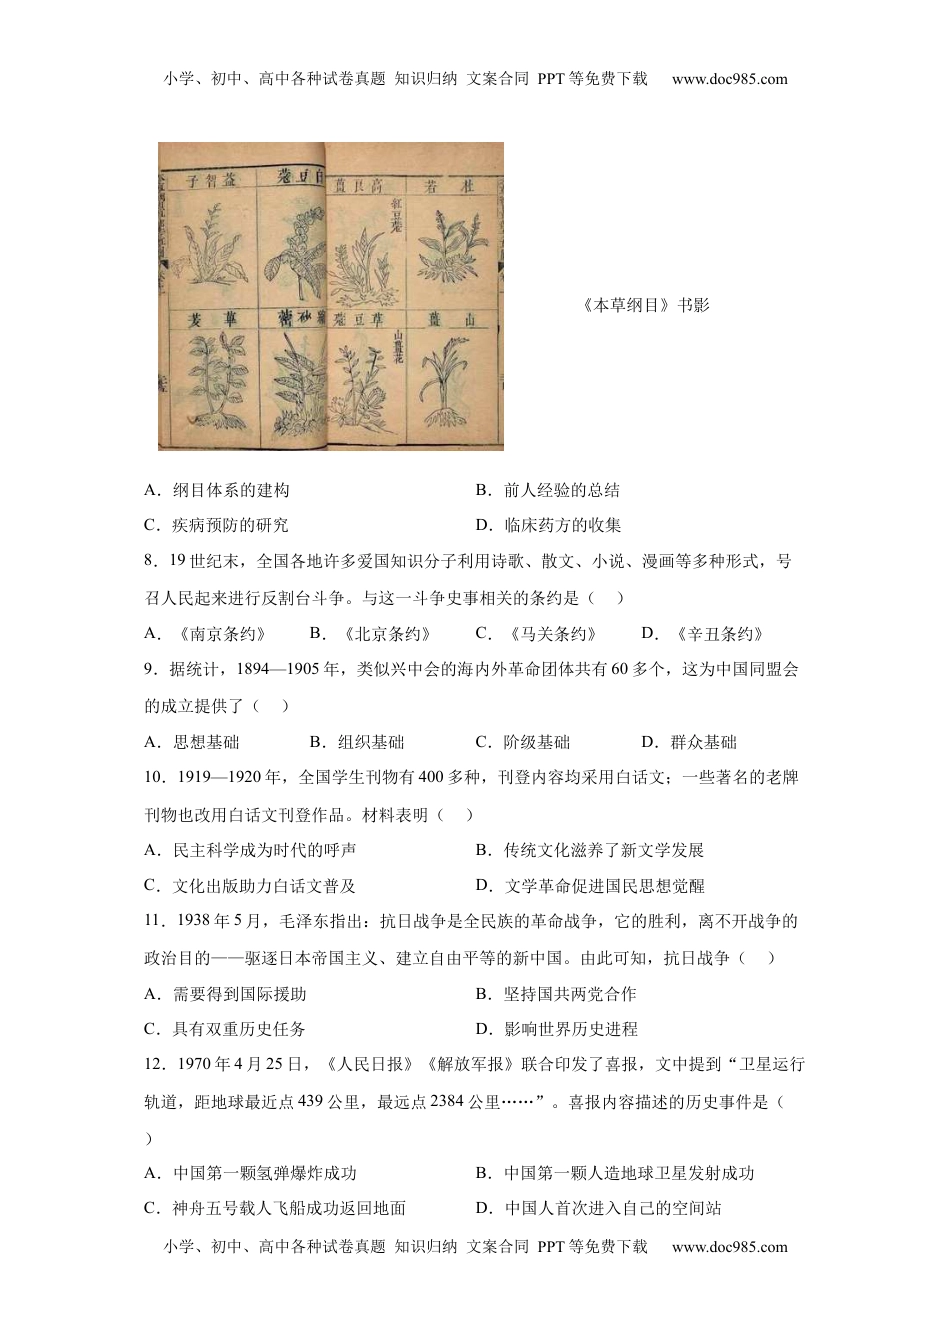 小学、初中、高中各种试卷真题 知识归纳 文案合同 PPT等免费下载 www.doc985.com
子智益
蔻豆白
薑良高
紅豆蔻
若杜
茇蓽
蔤砂縮
蔻豆草
山薑花
薑山
《本草纲目》书影
A．纲目体系的建构 B．前人经验的总结
C．疾病预防的研究 D．临床药方的收集
8．19世纪末，全国各地许多爱国知识分子利用诗歌、散文、小说、漫画等多种形式，号
召人民起来进行反割台斗争。与这一斗争史事相关的条约是（ ）
A．《南京条约》 B．《北京条约》 C．《马关条约》 D．《辛丑条约》
9．据统计，1894—1905年，类似兴中会的海内外革命团体共有60多个，这为中国同盟会
的成立提供了（ ）
A．思想基础 B．组织基础 C．阶级基础 D．群众基础
10．1919—1920年，全国学生刊物有400多种，刊登内容均采用白话文；一些著名的老牌
刊物也改用白话文刊登作品。材料表明（ ）
A．民主科学成为时代的呼声 B．传统文化滋养了新文学发展
C．文化出版助力白话文普及 D．文学革命促进国民思想觉醒
11．1938年5月，毛泽东指出：抗日战争是全民族的革命战争，它的胜利，离不开战争的
政治目的——驱逐日本帝国主义、建立自由平等的新中国。由此可知，抗日战争（ ）
A．需要得到国际援助 B．坚持国共两党合作
C．具有双重历史任务 D．影响世界历史进程
12．1970年4月25日，《人民日报》《解放军报》联合印发了喜报，文中提到“卫星运行
轨道，距地球最近点439公里，最远点2384公里……”。喜报内容描述的历史事件是（
）
A．中国第一颗氢弹爆炸成功 B．中国第一颗人造地球卫星发射成功
C．神舟五号载人飞船成功返回地面 D．中国人首次进入自己的空间站
小学、初中、高中各种试卷真题 知识归纳 文案合同 PPT等免费下载 www.doc985.com